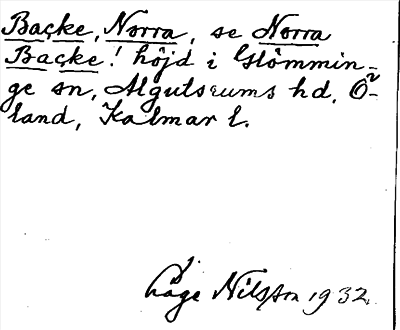 Backe, Norra, se Norra
Backe! höjd i Glömmin-
ge sn, Algutsrums hd, Ö-
land, Kalmar l.
Åge Nilsson 1932.